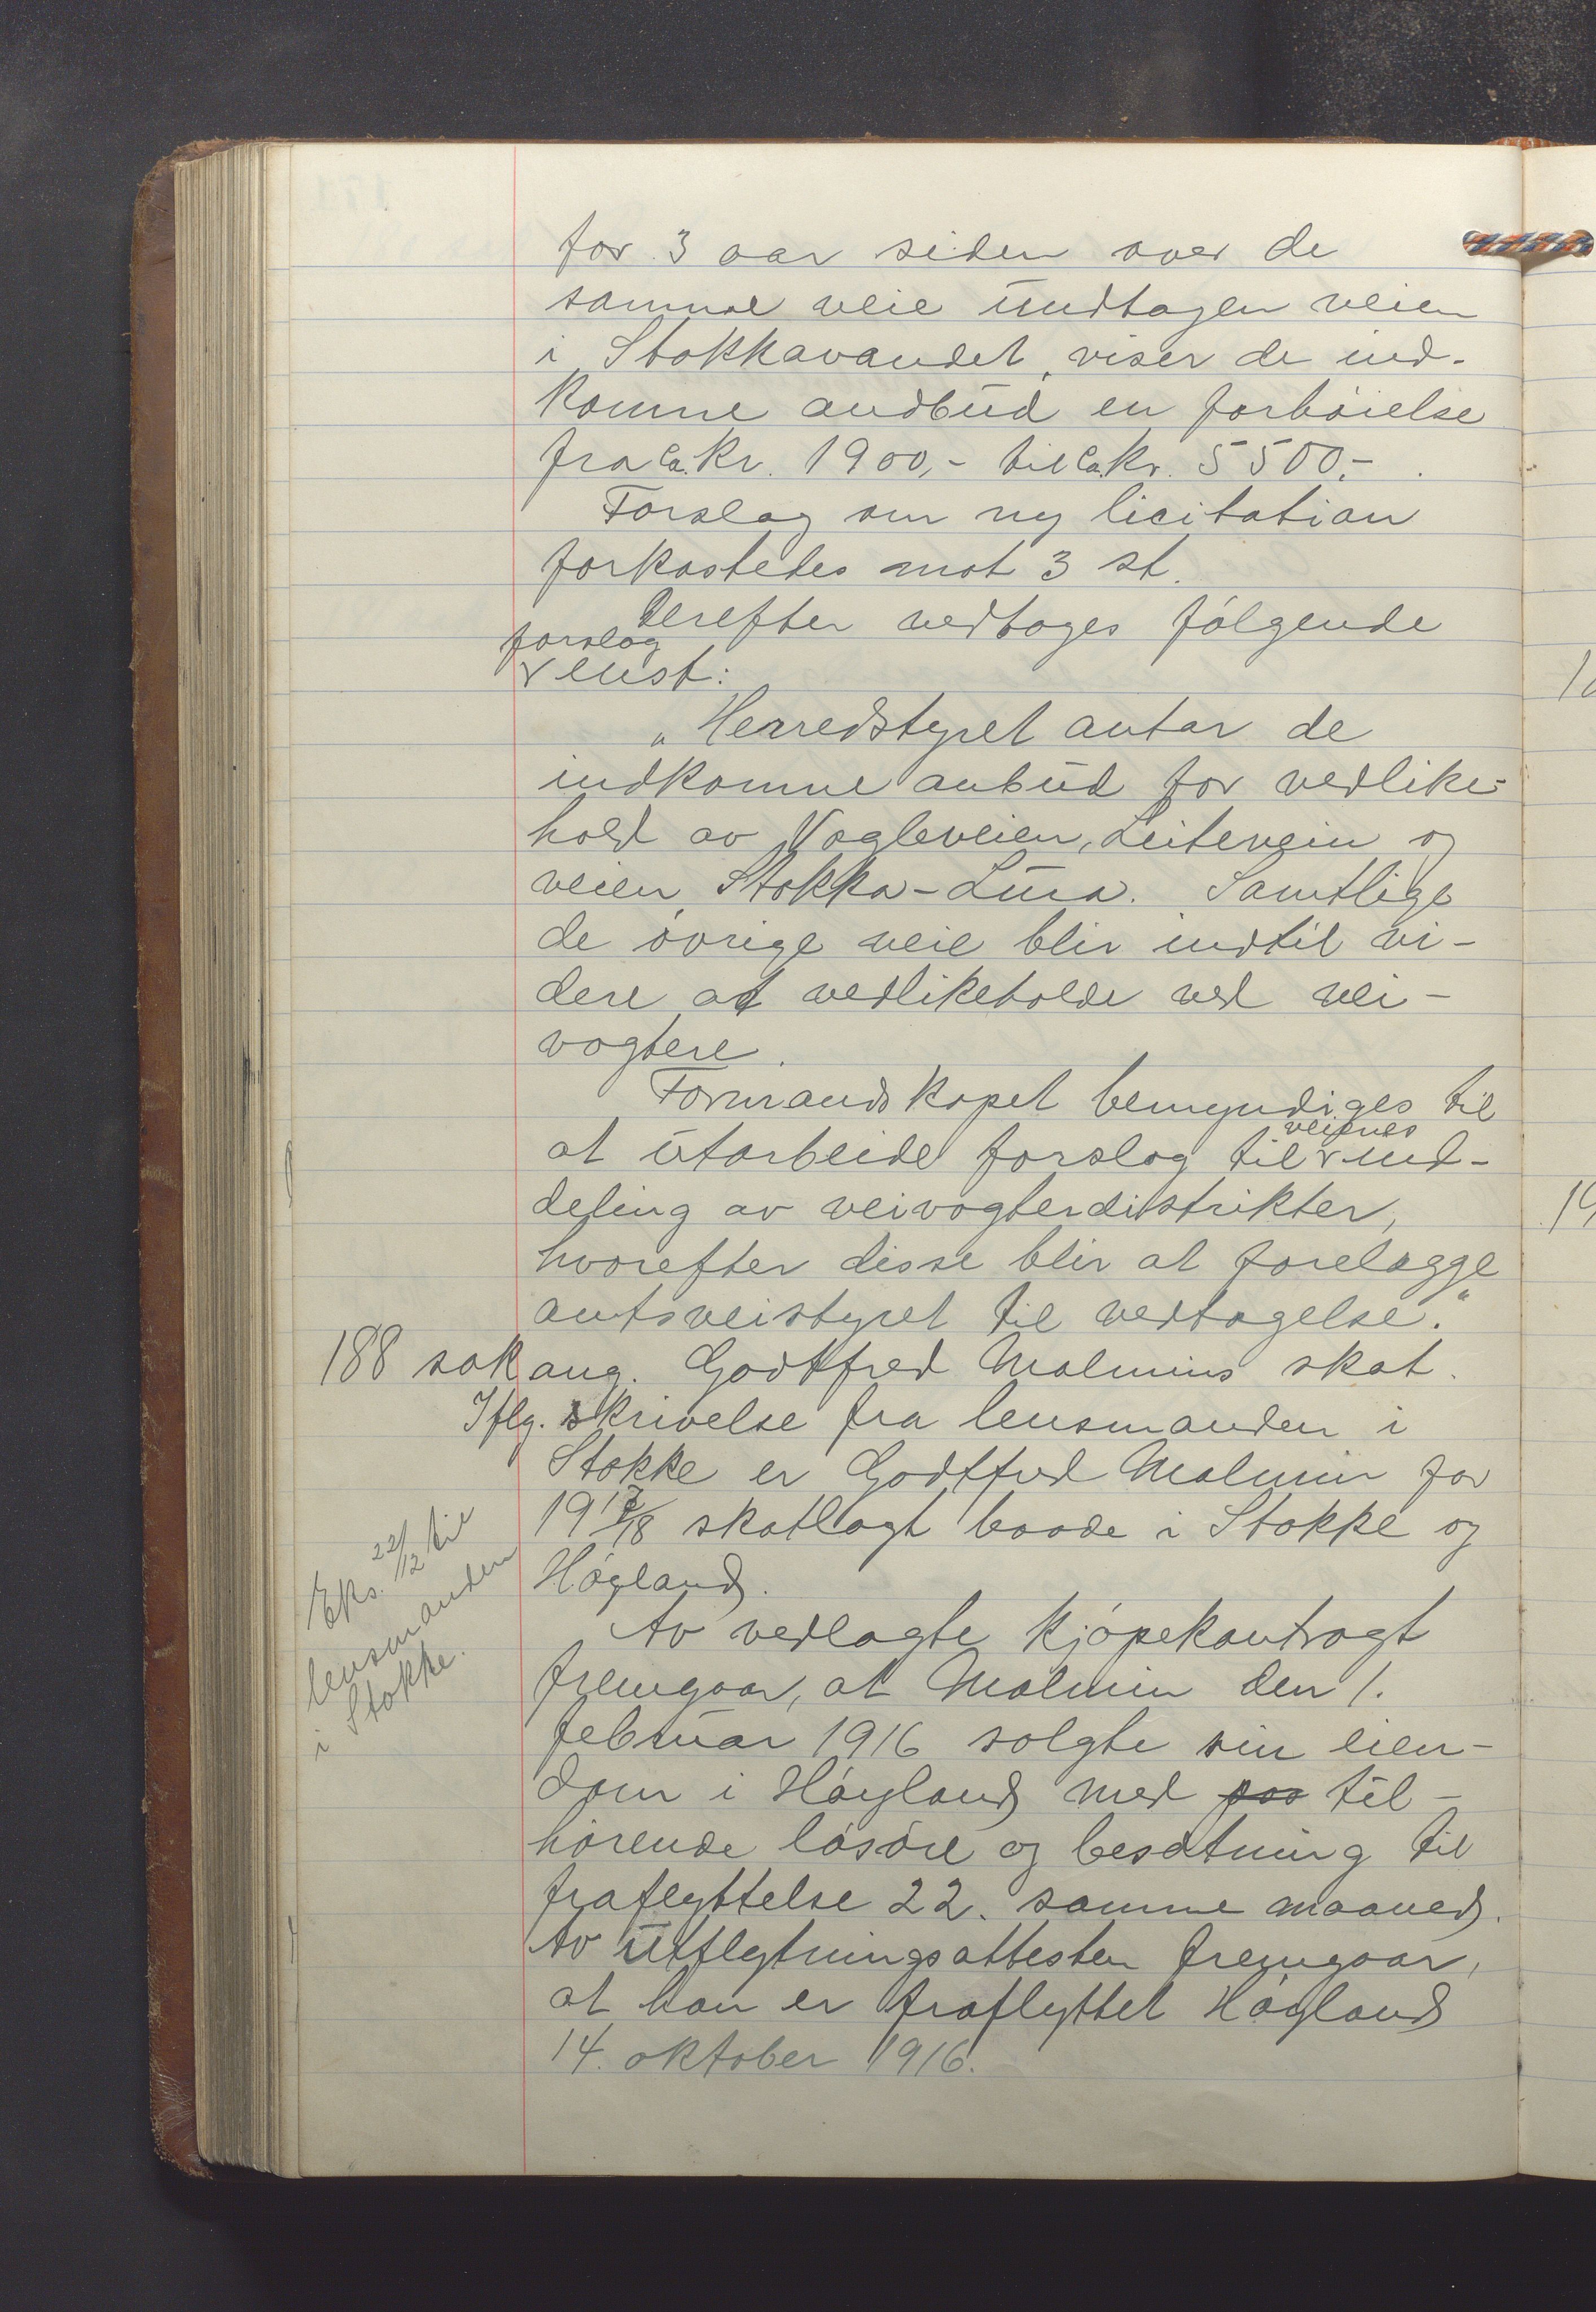 for 3 aar siden over de
samme veie undtagen veien
i Stokkavandet, viser de ind-
komne andbud en forhøielse
fra ca. kr. 1900,- til ca. kr. 5500,-.
Forslag om ny licitation
forkastedes mot 3 st.
Derefter vedtoges følgende
forslag
enst:
"Herredstyret antar de
indkomne anbud for vedlike-
hold av Vagleveien, Leitevein og
veien Stokka-Lura. Samtlige
de øvrige veie blir indtil vi-
dere at vedlikeholde ved vei-
vogtere.
Formandskapet bemyndiges til
veienes
at utarbeide forslag til ind-
deling av veivogterdistrikter,
hvorefter disse blir at forelægge
amtsveistyret til vedtagelse."
188 sak ang. Godtfred Malmins skat.
Iflg. skrivelse fra lensmanden i
Stokke er Godtfred Malmin for
1917/18 skatlagt baade i Stokke og
Høyland.
Eks. 22/12 til
lensmanden
i Stokke.
Av vedlagte kjøpekontragt
fremgaar, at Malmin den 1.
februar 1916 solgte sin eien-
dom i Høyland med paa til-
hørende løsøre og besætning til
fraflyttelse 22. samme maaned.
Av utflytningsattesten fremgaar,
at han er fraflyttet Høyland
14. oktober 1916.